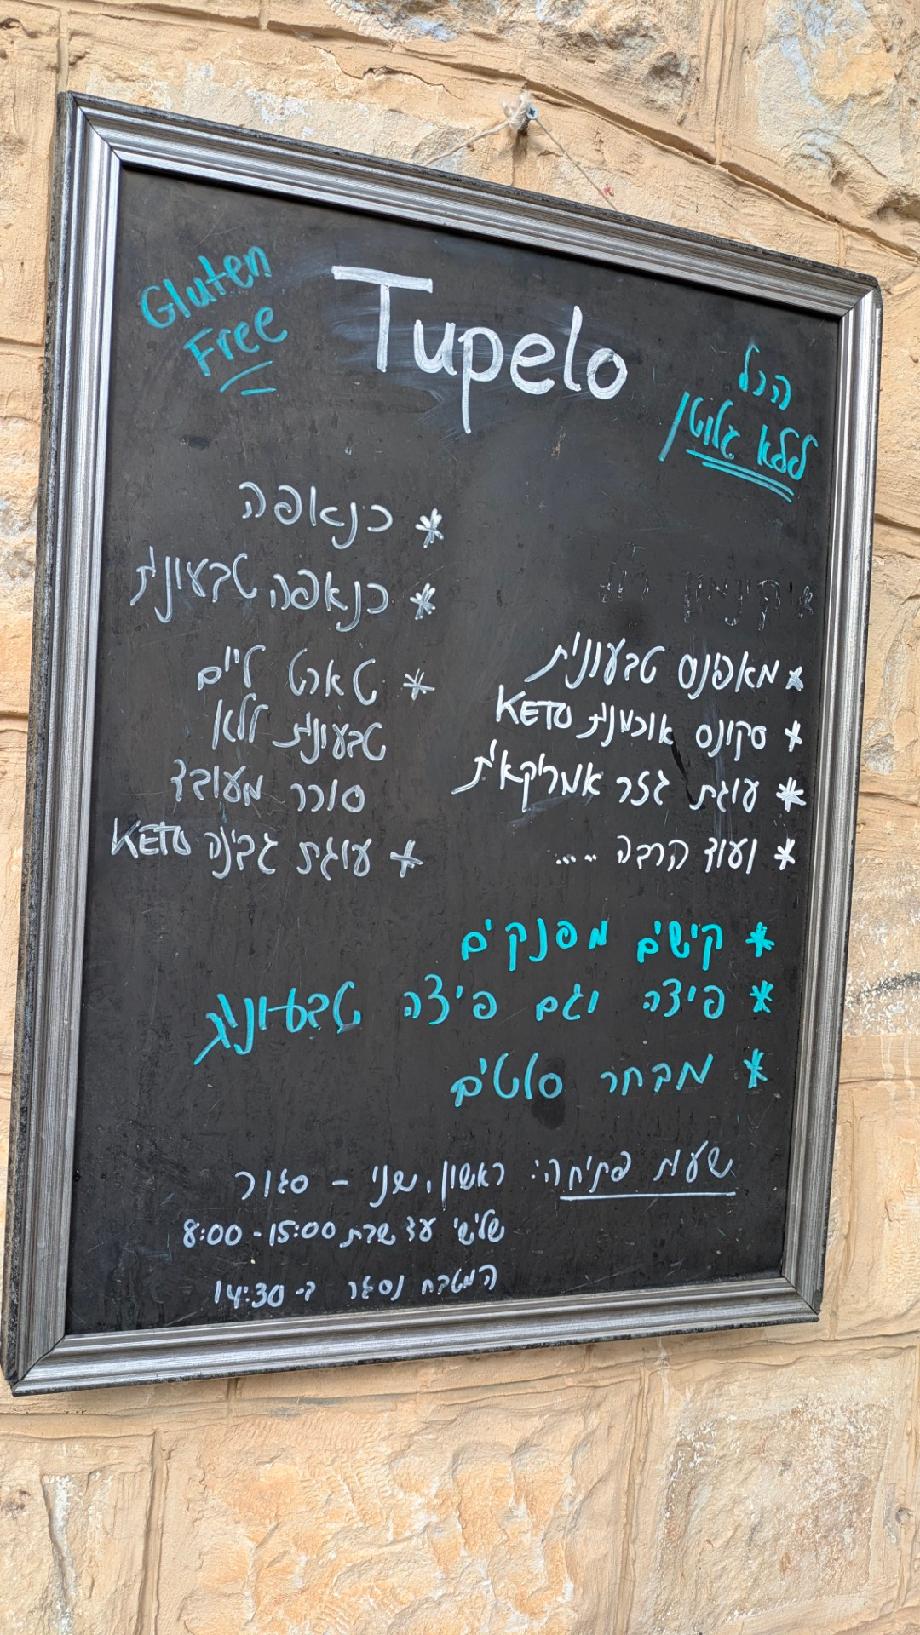 Gluten
Free
Tupelo
הכל
ללא גלוטן
* מאפינס טבעונית
* סקונס אוכמניות KETO
* עוגת גזר אמריקאית
* ועוד הרבה .....
* כנאפה
* כנאפה טבעונית
* טארט ליים
טבעונית ללא
סוכר מעובד
* עוגת גבינה KETO
* קישים מפנקים
* פיצה וגם פיצה טבעונית
* מבחר סלטים
שעות פתיחה: ראשון, שני - סגור
שלישי עד שבת 8:00-15:00
המטבח נסגר ב- 14:30